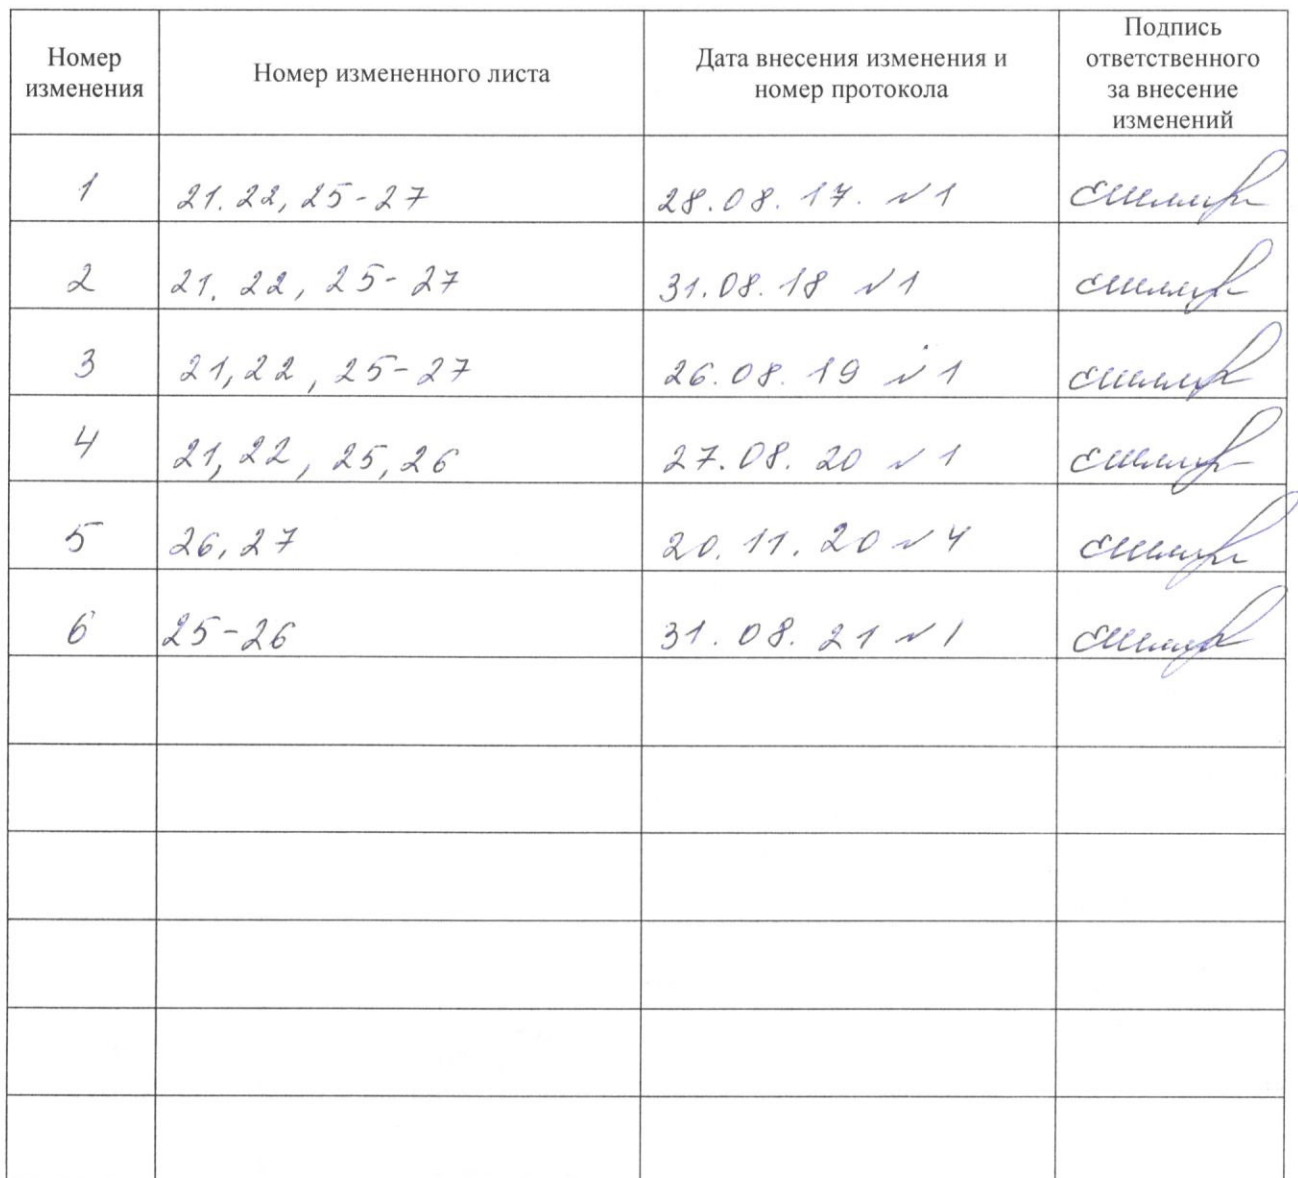 Номер
изменения
Номер измененного листа
Дата внесения изменения и
номер протокола
Подпись
ответственного
за внесение
изменений
1 21. 22, 25-27 28.08.17. №1
2 21. 22, 25-27 31.08.18 №1
3 21,22, 25-27 26.08.19 №1
4 21,22, 25,26 27.08.20 №1
5 26,27 20.11.20 №4
6 25-26 31.08.21 №1